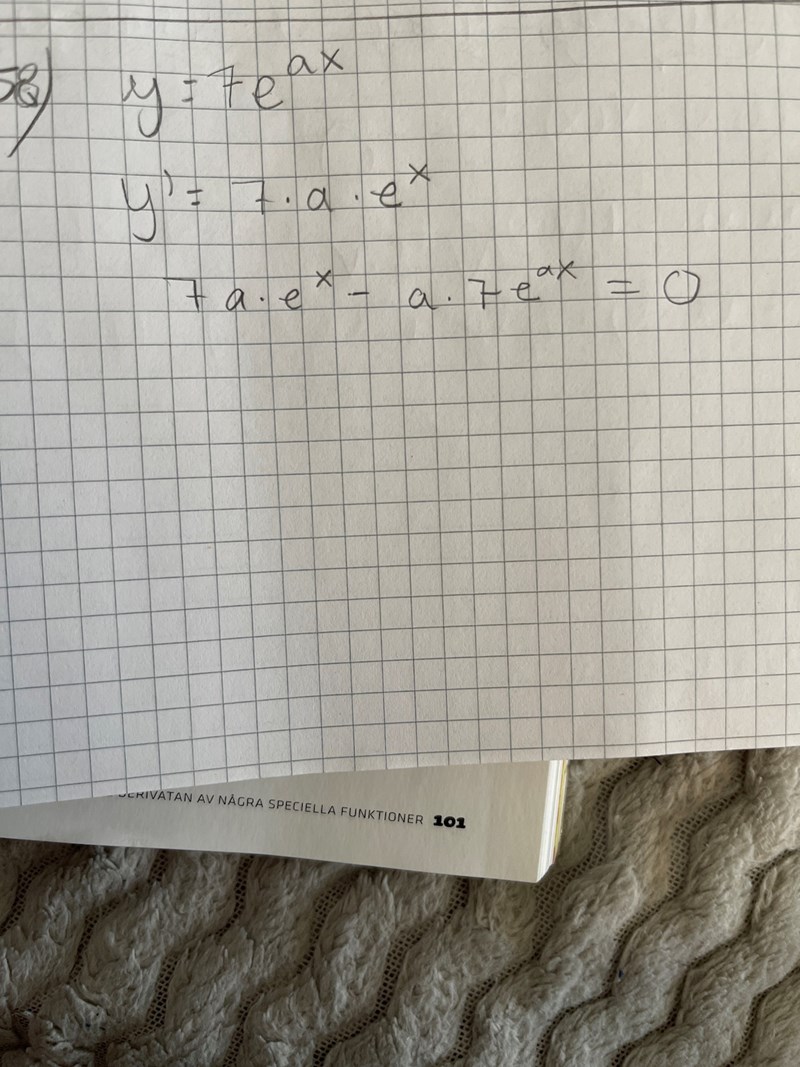 58) y = 7e^{ax}
y' = 7 · a · e^x
7 a · e^x - a · 7e^{ax} = 0
DERIVATAN AV NÅGRA SPECIELLA FUNKTIONER 101